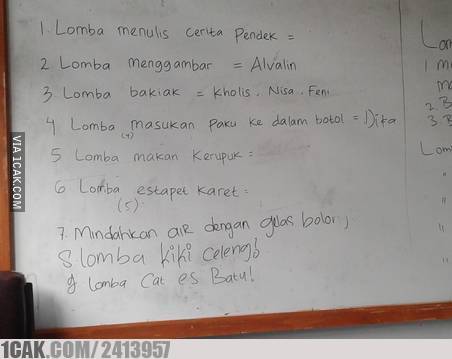 1. Lomba menulis cerita Pendek =
2 Lomba menggambar = Alvalin
3 Lomba bakiak = Kholis. Nisa. Feni
4 Lomba masukan Paku ke dalam botol = Dika
(4)
5 Lomba makan Kerupuk =
6 Lomba estapet karet =
(5)
7. Mindahkan aiR dengan gelas bolor,
8 lomba kiki celeng
9 lomba Cat es Batu!
Lom
1 m
m
2. B
3 B
Lom
"
"
"
"
VIA 1CAK.COM
1CAK.COM/2413957